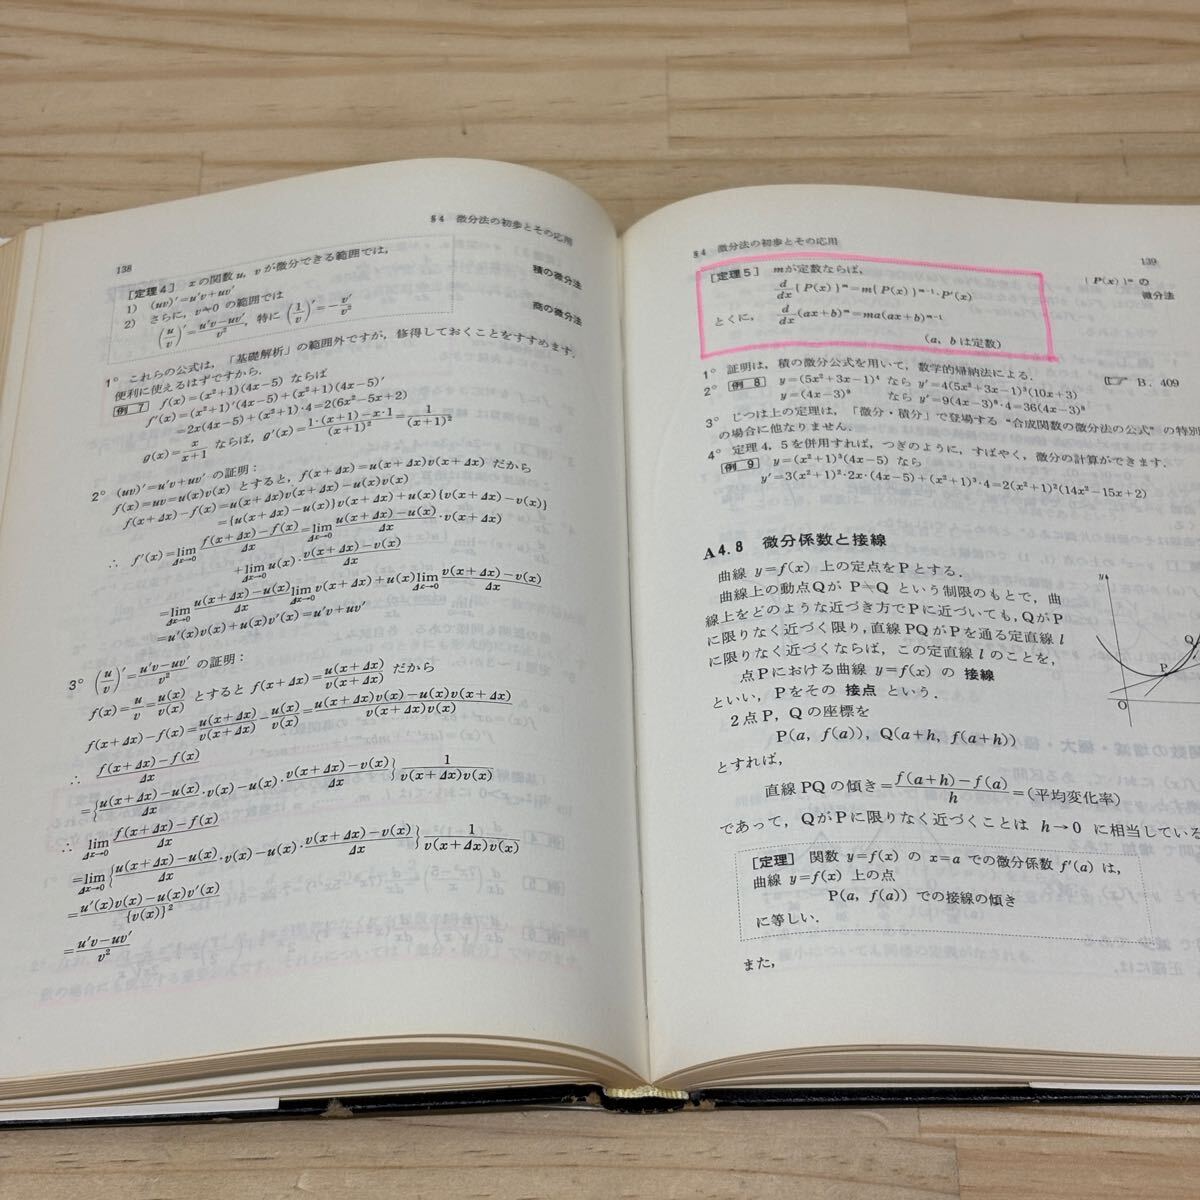 138
§4 微分法の初歩とその応用
[定理4] xの関数u, vが微分できる範囲では,
1) (uv)′=u′v+uv′
積の微分法
2) さらに, v≠0 の範囲では
(u/v)′=(u′v−uv′)/v², 特に (1/v)′=−v′/v²
商の微分法
1° これらの公式は, 「基礎解析」の範囲外ですが, 修得しておくことをすすめます.
便利に使えるはずですから.
例 7 f(x)=(x²+1)(4x−5) ならば
f′(x)=(x²+1)′(4x−5)+(x²+1)(4x−5)′
=2x(4x−5)+(x²+1)·4=2(6x²−5x+2)
g(x)=x/(x+1) ならば, g′(x)=(1·(x+1)−x·1)/(x+1)²=1/(x+1)²
2° (uv)′=u′v+uv′ の証明:
f(x)=uv=u(x)v(x) とすると, f(x+Δx)=u(x+Δx)v(x+Δx) だから
f(x+Δx)−f(x)=u(x+Δx)v(x+Δx)−u(x)v(x)
={u(x+Δx)−u(x)}v(x+Δx)+u(x){v(x+Δx)−v(x)}
∴ f′(x)=lim_{Δx→0} (f(x+Δx)−f(x))/Δx=lim_{Δx→0} (u(x+Δx)−u(x))/Δx·v(x+Δx)
+lim_{Δx→0} u(x)·(v(x+Δx)−v(x))/Δx
=lim_{Δx→0} (u(x+Δx)−u(x))/Δx lim_{Δx→0} v(x+Δx)+u(x) lim_{Δx→0} (v(x+Δx)−v(x))/Δx
=u′(x)v(x)+u(x)v′(x)=u′v+uv′
3° (u/v)′=(u′v−uv′)/v² の証明:
f(x)=u/v=u(x)/v(x) とすると f(x+Δx)=u(x+Δx)/v(x+Δx) だから
f(x+Δx)−f(x)=u(x+Δx)/v(x+Δx)−u(x)/v(x)=(u(x+Δx)v(x)−u(x)v(x+Δx))/(v(x+Δx)v(x))
∴ (f(x+Δx)−f(x))/Δx
={(u(x+Δx)−u(x))/Δx·v(x)−u(x)·(v(x+Δx)−v(x))/Δx} 1/(v(x+Δx)v(x))
∴ lim_{Δx→0} (f(x+Δx)−f(x))/Δx
=lim_{Δx→0} {(u(x+Δx)−u(x))/Δx·v(x)−u(x)·(v(x+Δx)−v(x))/Δx} 1/(v(x+Δx)v(x))
=(u′(x)v(x)−u(x)v′(x))/{v(x)}²
=(u′v−uv′)/v²
§4 微分法の初歩とその応用
139
[定理5] mが定数ならば,
{P(x)}ᵐの
微分法
d/dx{P(x)}ᵐ=m{P(x)}ᵐ⁻¹·P′(x)
とくに, d/dx(ax+b)ᵐ=ma(ax+b)ᵐ⁻¹
(a, bは定数)
1° 証明は, 積の微分公式を用いて, 数学的帰納法による.
☞ B. 409
2° 例 8 y=(5x²+3x−1)⁴ なら y′=4(5x²+3x−1)³(10x+3)
y=(4x−3)⁹ なら y′=9(4x−3)⁸·4=36(4x−3)⁸
3° じつは上の定理は, 「微分・積分」で登場する “合成関数の微分法の公式” の特別
の場合に他なりません.
4° 定理4, 5を併用すれば, つぎのように, すばやく, 微分の計算ができます.
例 9 y=(x²+1)³(4x−5) なら
y′=3(x²+1)²·2x·(4x−5)+(x²+1)³·4=2(x²+1)²(14x²−15x+2)
A4.8 微分係数と接線
曲線 y=f(x) 上の定点をPとする.
曲線上の動点Qが P≠Q という制限のもとで, 曲
線上をどのような近づき方でPに近づいても, QがP
に限りなく近づく限り, 直線PQがPを通る定直線 l
に限りなく近づくならば, この定直線 l のことを,
点Pにおける曲線 y=f(x) の 接線
といい, Pをその 接点 という.
2点P, Qの座標を
P(a, f(a)), Q(a+h, f(a+h))
とすれば,
直線PQの傾き=(f(a+h)−f(a))/h=(平均変化率)
であって, QがPに限りなく近づくことは h→0 に相当している
[定理] 関数 y=f(x) の x=a での微分係数 f′(a) は,
曲線 y=f(x) 上の点
P(a, f(a)) での接線の傾き
に等しい.
また,
y
Q
P
O